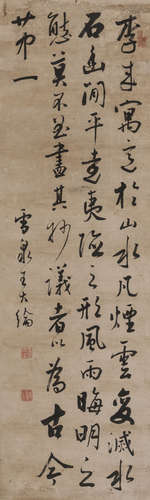 李成寓意於山水凡煙雲變滅水
石幽閒平遠夷險之形風雨晦明之
態莫不曲盡其妙議者以為古今
第一
雪泉王大綸